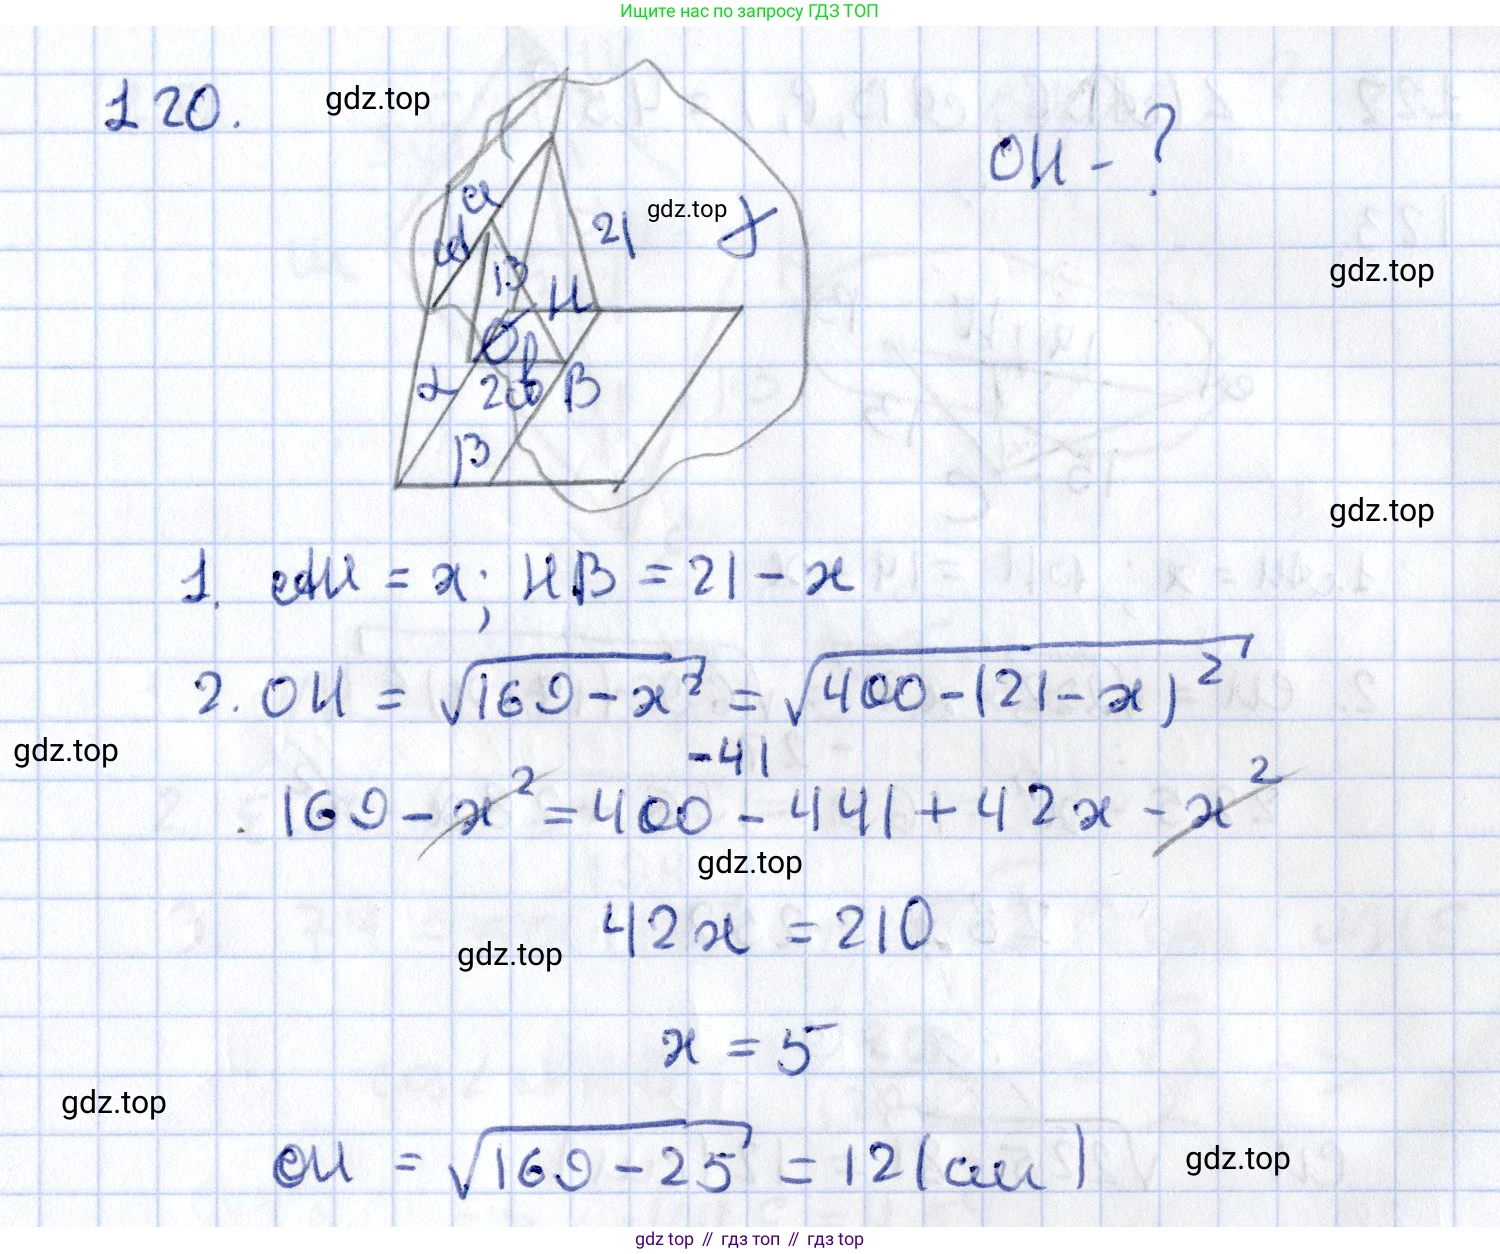 Ищите нас по запросу ГДЗ ТОП
120.
gdz.top
OH - ?
a
21
gdz.top
γ
gdz.top
13
H
O
α
20
B
β
gdz.top
1. AH = x; HB = 21 - x
2. OH = √169 - x² = √400 - (21 - x)²
gdz.top
-41
169 - x² = 400 - 441 + 42x - x²
gdz.top
42x = 210
gdz.top
x = 5
gdz.top
OH = √169 - 25 = 12 (см)
gdz.top
gdz top // гдз топ // gdz top